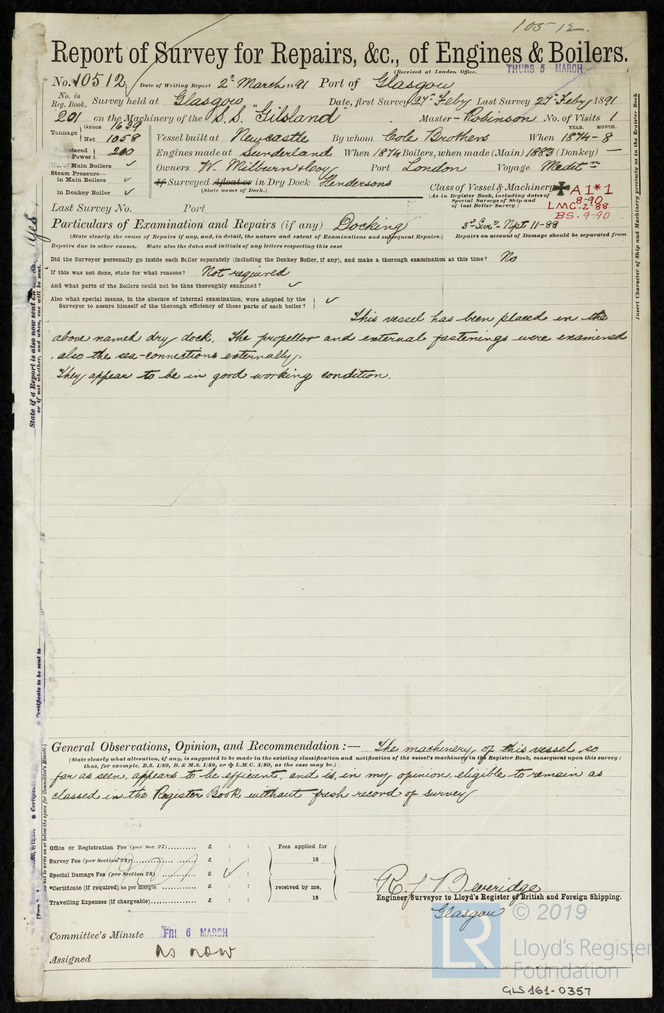 105 12
Report of Survey for Repairs, &c., of Engines & Boilers.
(Received at London Office, THURS 5 MARCH
No. 10512 Date of Writing Report 2d March 1891 Port of Glasgow
No. in Reg. Book. Survey held at Glasgow Date, first Survey 27 Feby Last Survey 27 Feby 1891
201 on the Machinery of the S.S. "Gilsland" Master Robinson No. of Visits 1
Tonnage Gross 1639 Net 1058 Vessel built at Newcastle By whom Cole Brothers When 1874-8
YEAR. MONTH.
Registered Power 200 Engines made at Sunderland When 1874 Boilers, when made (Main) 1883 (Donkey) —
No. of Main Boilers ✓ Owners W. Milburn & Coy Port London Voyage Medit
Steam Pressure— in Main Boilers ✓ If Surveyed Afloat or in Dry Dock Hendersons
(State name of Dock.)
in Donkey Boiler ✓
Class of Vessel & Machinery ✠ A 1 * 1
(As in Register Book, including dates of Special Surveys of Ship and of last Boiler Survey.)
8-90
LMC-2-88
BS. 9-90
Last Survey No. Port
Particulars of Examination and Repairs (if any) Docking
(State clearly the cause of Repairs if any, and, in detail, the nature and extent of Examinations and subsequent Repairs.) Repairs on account of Damage should be separated from
Repairs due to other causes, State also the dates and initials of any letters respecting this case
Did the Surveyor personally go inside each Boiler separately (including the Donkey Boiler, if any), and make a thorough examination at this time? No
If this was not done, state for what reasons? Not required
And what parts of the Boilers could not be thus thoroughly examined? ✓
Also what special means, in the absence of internal examination, were adopted by the Surveyor to assure himself of the thorough efficiency of those parts of each boiler? ✓
This vessel has been placed in the
above named dry dock. The propellor and external fastenings were examined
, also the sea-connections externally.
They appear to be in good working condition.
General Observations, Opinion, and Recommendation :— The machinery of this vessel, so
(State clearly what alteration, if any, is suggested to be made in the existing classification and notification of the vessel's machinery in the Register Book, consequent upon this survey:
thus, for example, B.S. 1/89, B. & M.S. 1/89, or ✠ L.M.C. 1/89, as the case may be.)
far as seen, appears to be efficient, and is, in my opinion, eligible to remain as
classed in the Register Book without fresh record of survey
Office or Registration Fee (per Sec. 27).......... £ : :
Fees applied for
Survey Fee (per Section 28).......... £ : :
18
Special Damage Fee (per Section 28).......... £ : :
*Certificate (if required) as per margin £ : :
received by me,
Travelling Expenses (if chargeable).......... £ : :
18
R. J. Beveridge
Engineer Surveyor to Lloyd's Register of British and Foreign Shipping.
Glasgow
Committee's Minute FRI 6 MARCH
Assigned As now
© 2019
LR
Lloyd's Register
Foundation
GLS161-0357
Insert Character of Ship and Machinery precisely as in the Register Book
State if a Report is also now sent on the
Yes